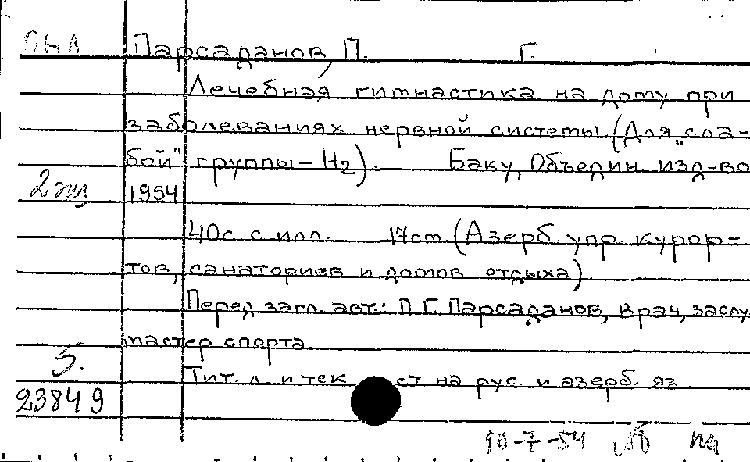 Парсаданов, П. Г.
Лечебная гимнастика на дому при
заболеваниях нервной системы (Для "сла-
бой" группы - Н2). Баку, Объедин. изд-во
2 экз 1954
40с. с илл. 17см (Азерб. упр. курор-
тов, санаториев и домов отдыха)
Перед загл. авт.: П.Г. Парсаданов, врач, заслу
мастер спорта.
Тит. л. и текст на рус. и азерб. яз.
5.
23849
10-7-54